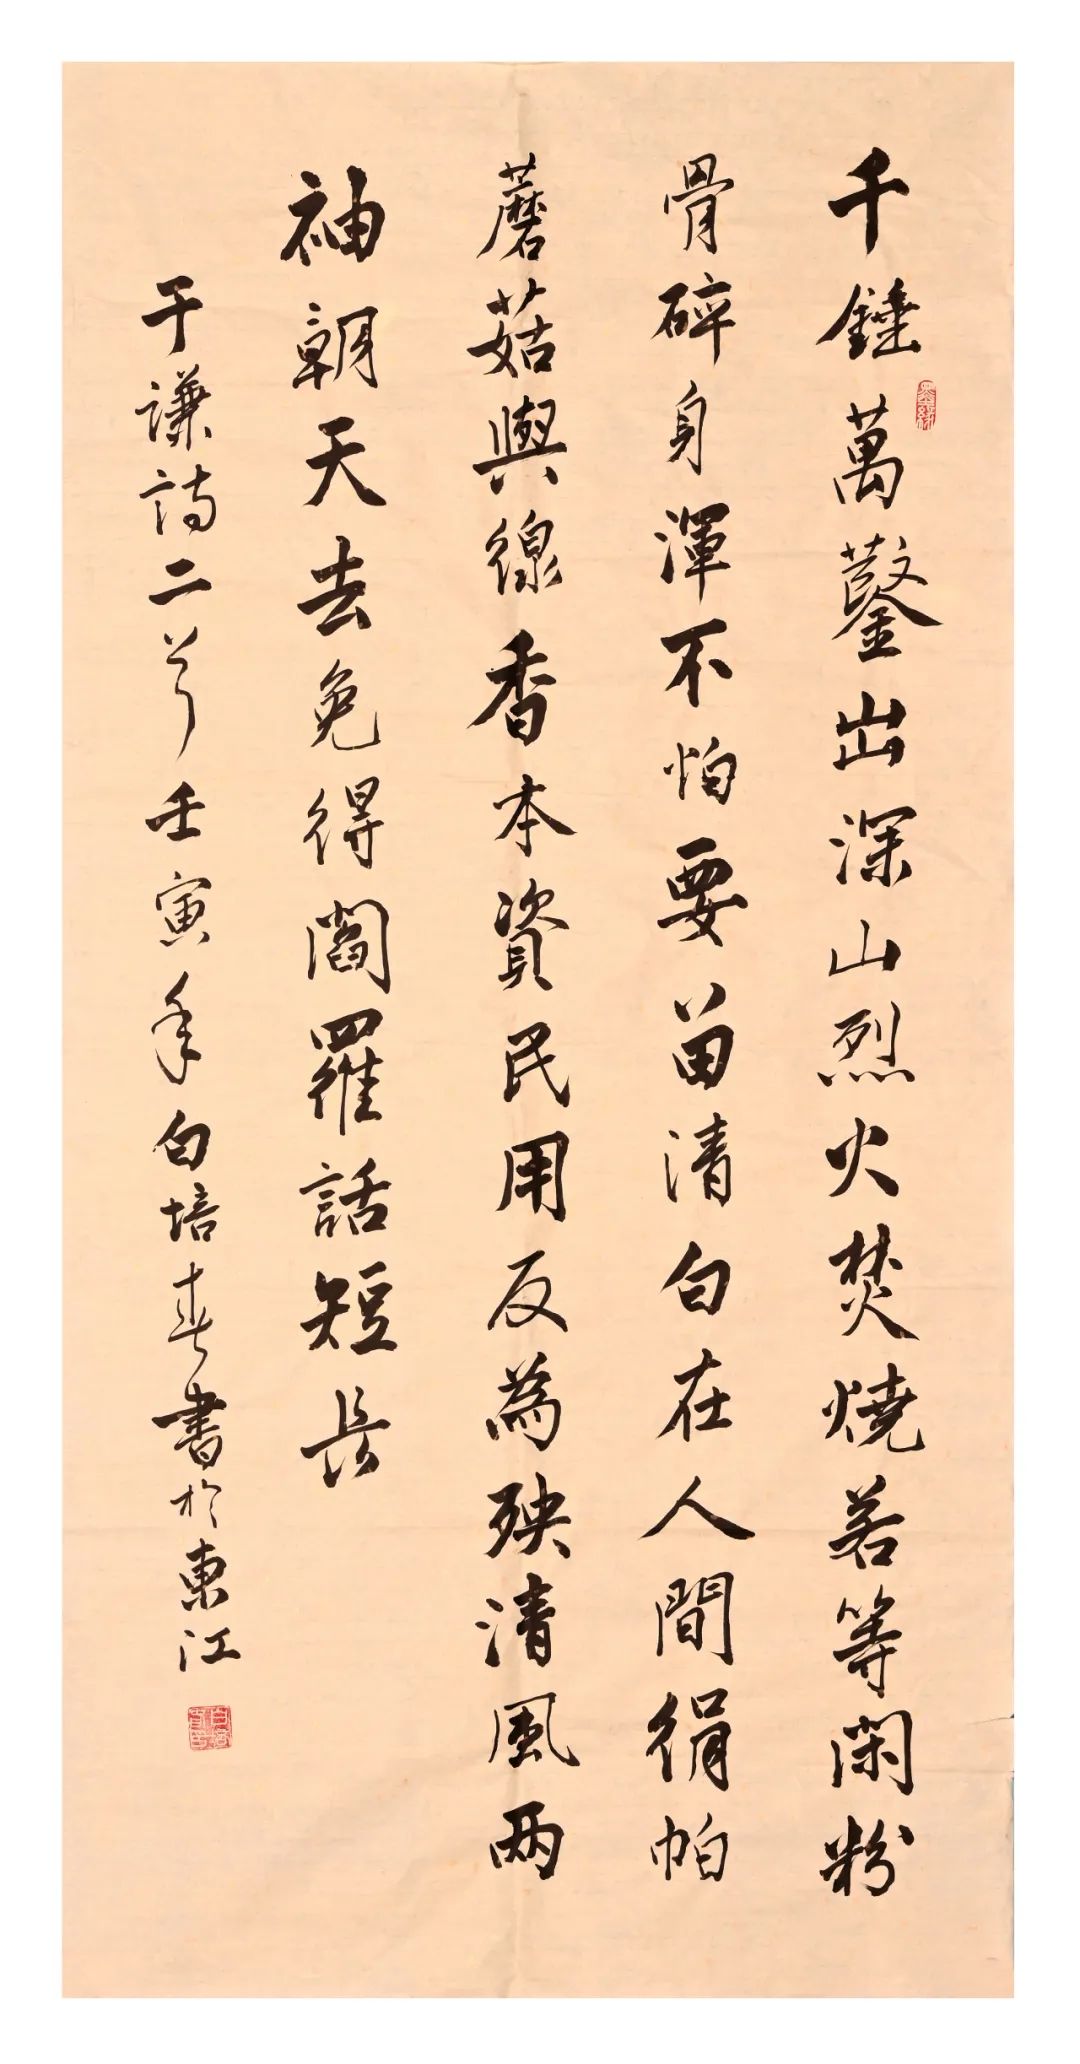 千錘萬鑿出深山烈火焚燒若等閑粉
骨碎身渾不怕要留清白在人間絹帕
蘑菇與線香本資民用反為殃清風兩
袖朝天去免得閻羅話短長
于謙詩二首壬寅年白培春書於東江